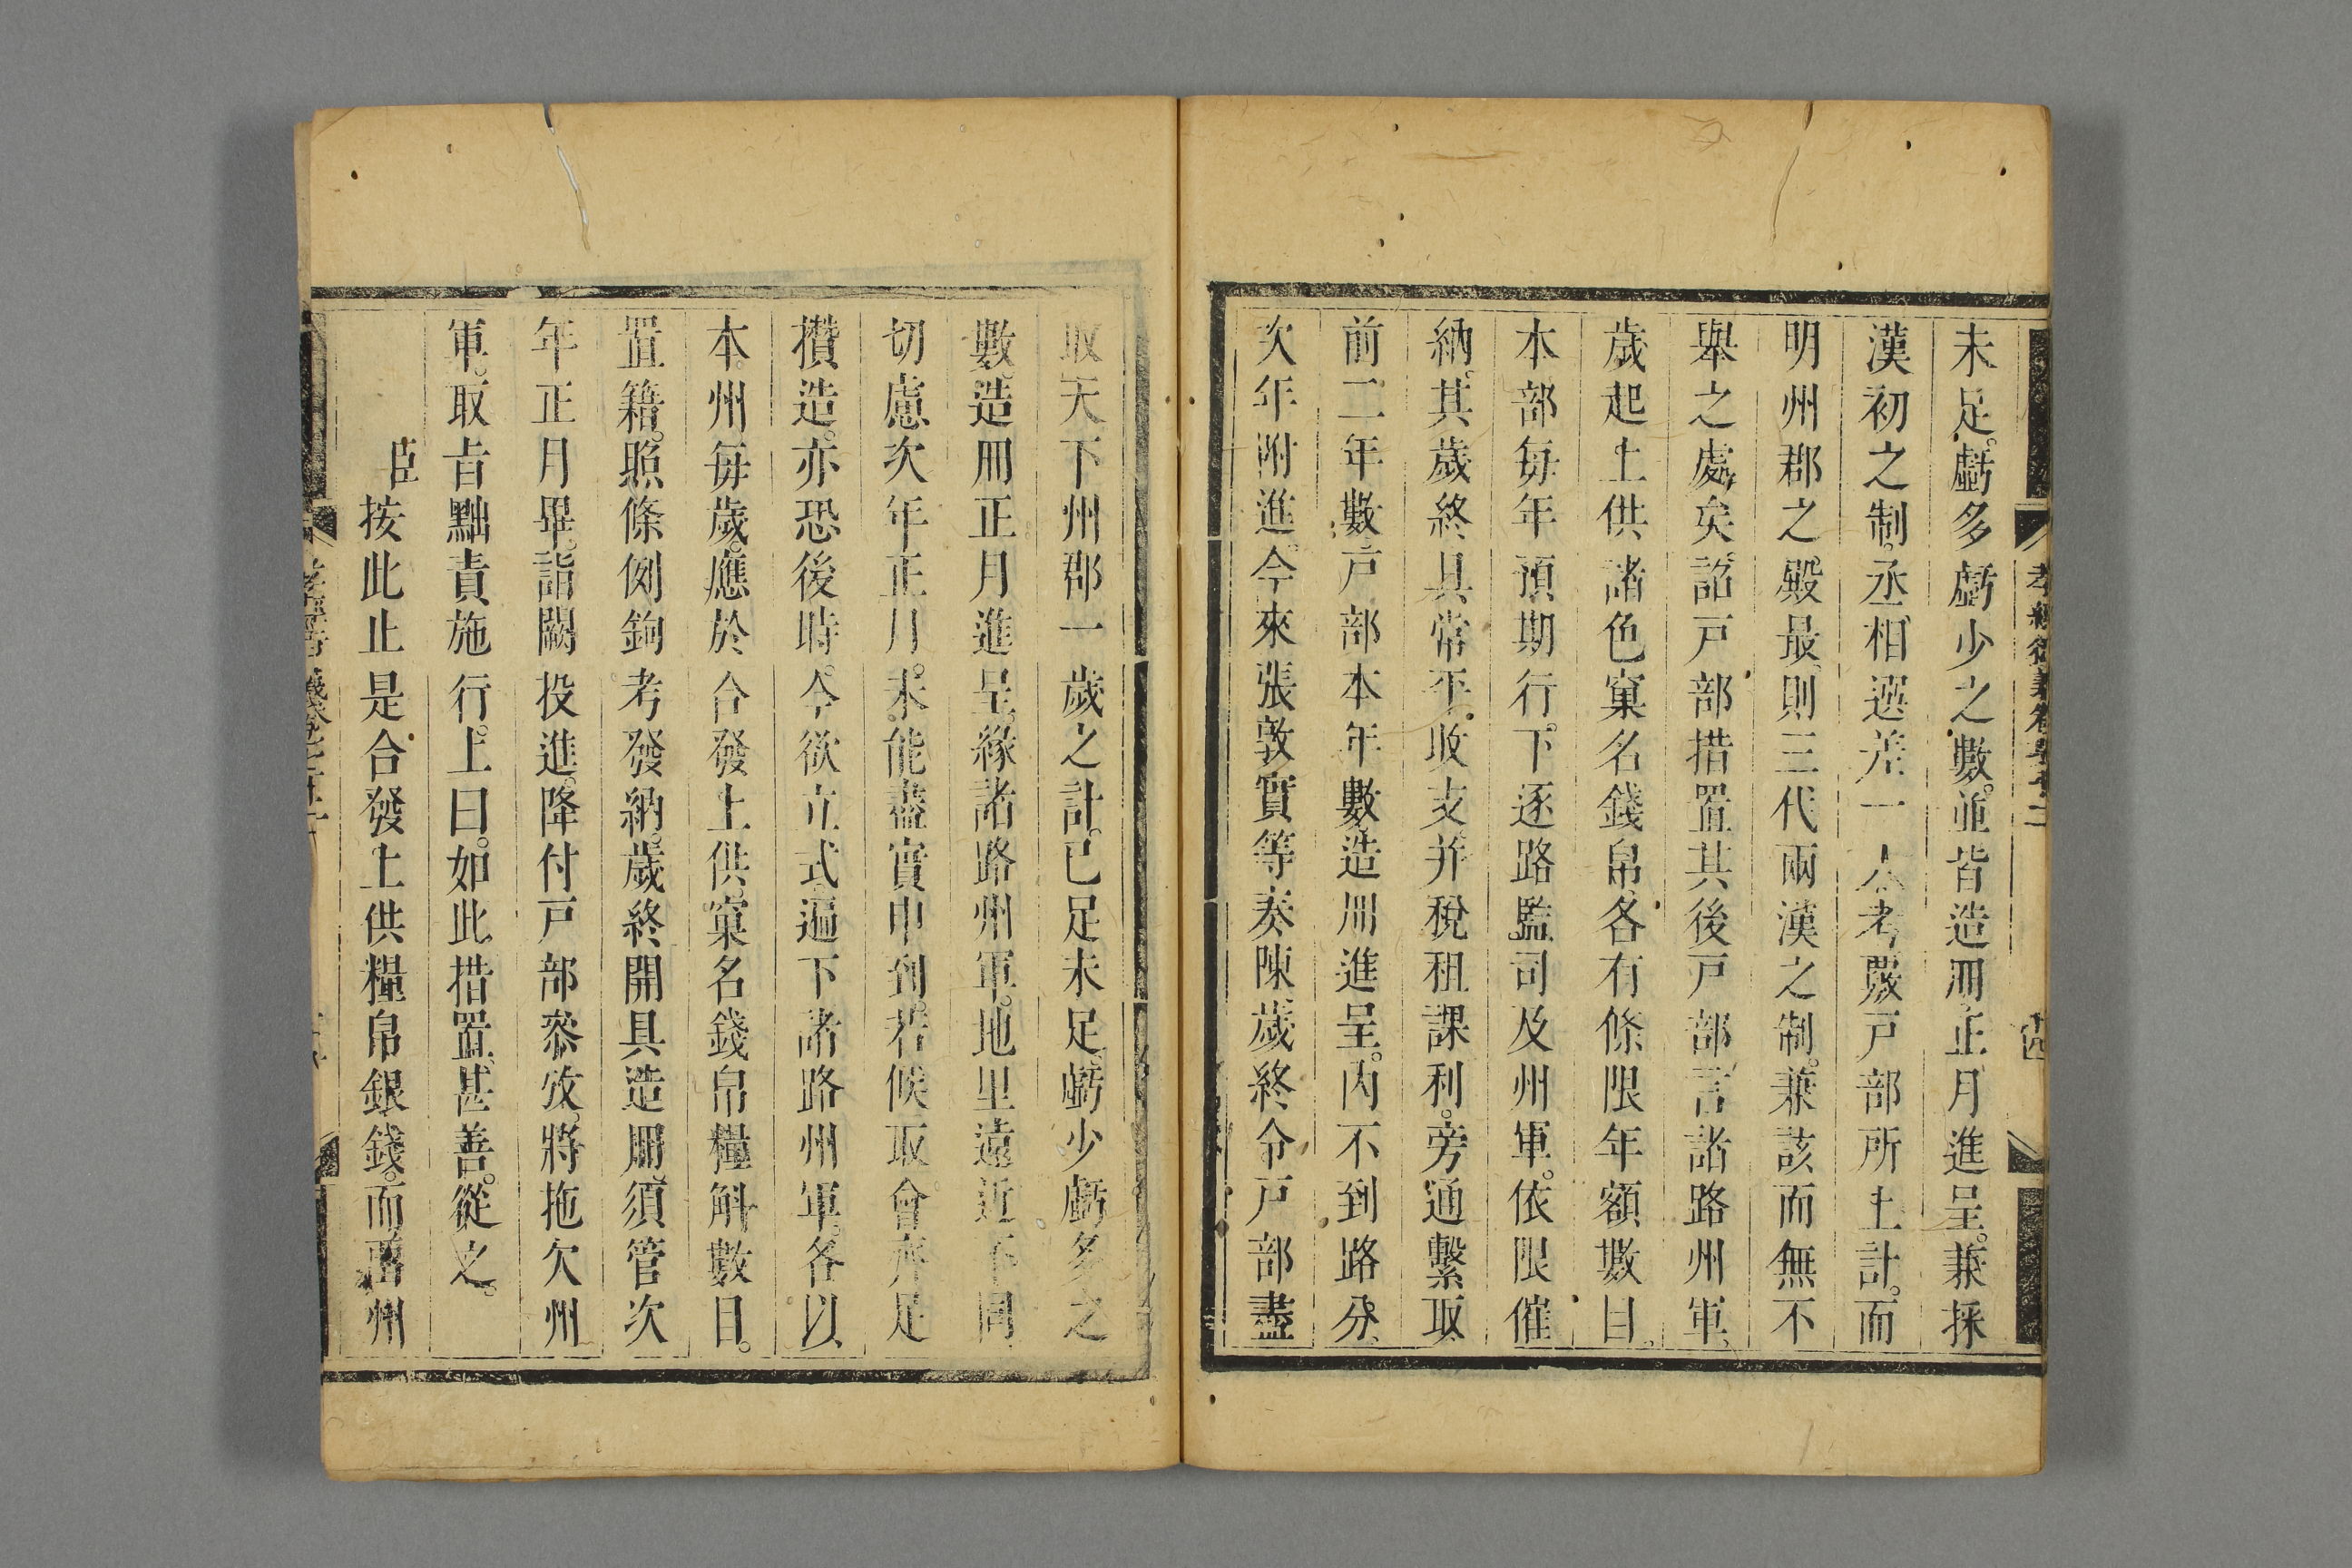 未足虧多虧少之數並皆造冊正月進呈兼採
漢初之制丞相選差一人考覈戸部所上計而
明州郡之殿最則三代兩漢之制兼該而無不
舉之處矣詔戸部措置其後戸部言諸路州軍
歲起上供諸色窠名錢帛各有條限年額數目
本部每年預期行下逐路監司及州軍依限催
納其歲終具常平收支并稅租課利旁通繫取
前二年數戸部本年數造冊進呈內不到路分
次年附進今來張敦實等奏陳歲終令戸部盡
取天下州郡一歲之計已足未足虧少虧多之
數造冊正月進呈緣諸路州軍地里遠近不同
切慮次年正月未能盡實申到若候取會齊足
攢造亦恐後時今欲立式遍下諸路州軍各以
本州每歲應於合發上供窠名錢帛糧斛數目
置籍照條例鉤考發納歲終開具造冊須管次
年正月畢詣闕投進降付戸部叅攷將拖欠州
軍取旨黜責施行上曰如此措置甚善從之
臣按此止是合發上供糧帛銀錢而西州